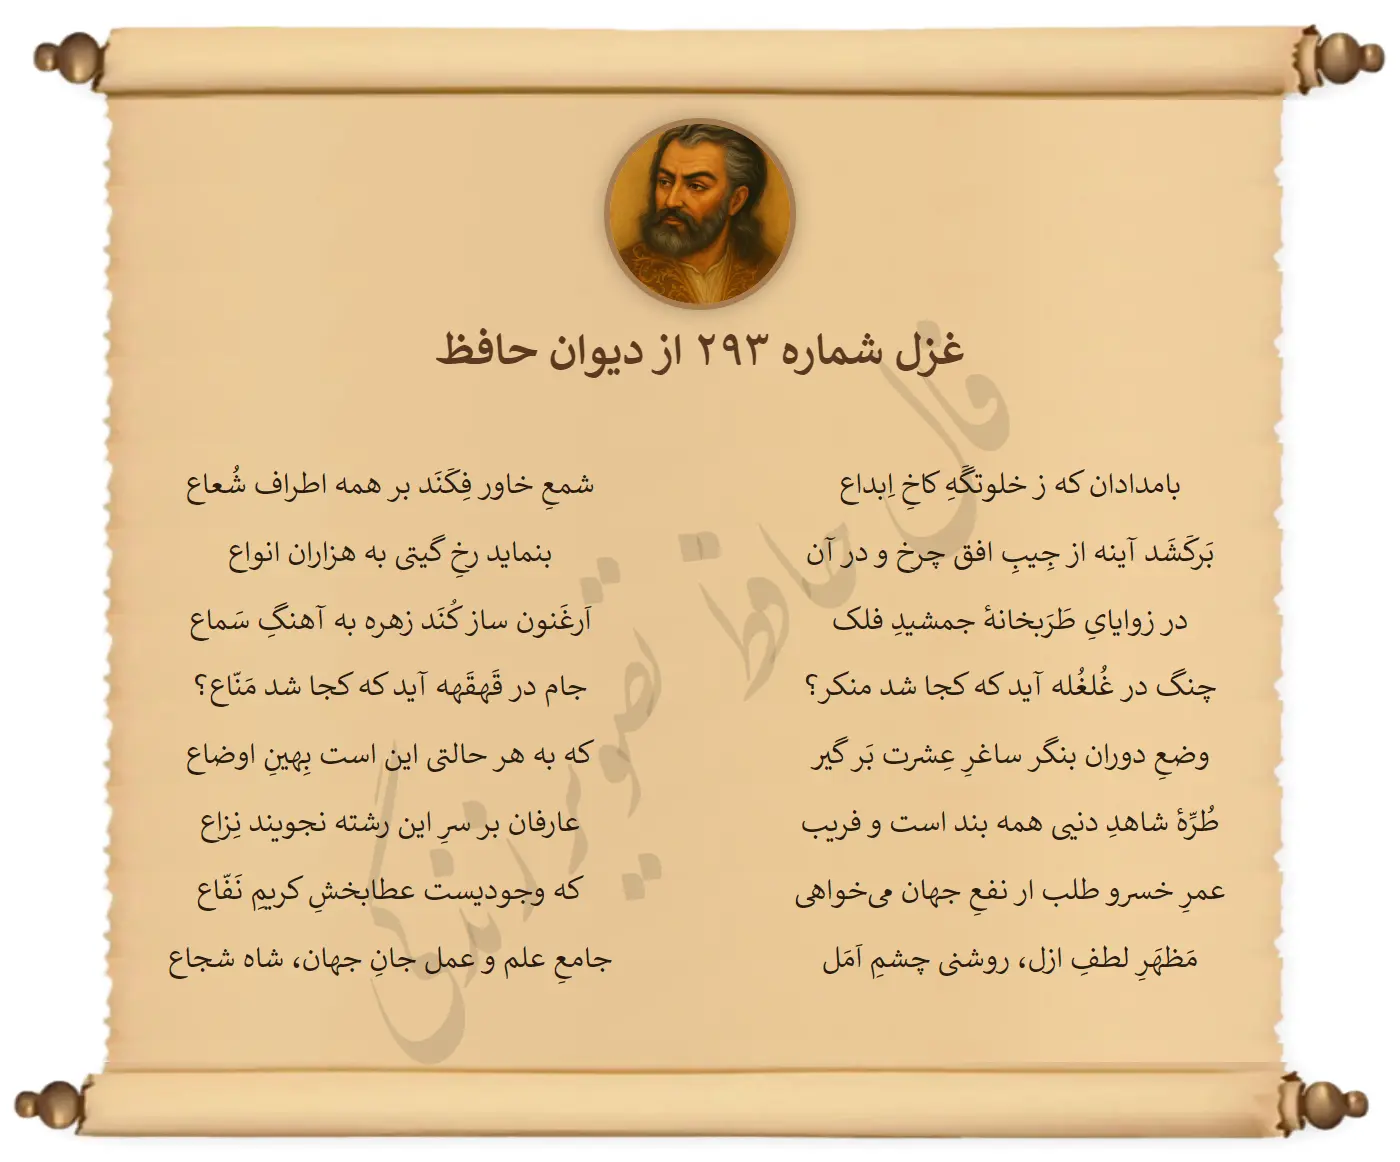 غزل شماره ۲۹۳ از دیوان حافظ
بامدادان که ز خلوتگَهِ کاخِ اِبداع
شمعِ خاور فِکَنَد بر همه اطراف شُعاع
بَرکَشَد آینه از جِیبِ افق چرخ و در آن
بنماید رخِ گیتی به هزاران انواع
در زوایایِ طَرَبخانهٔ جمشیدِ فلک
اَرغَنون ساز کُنَد زهره به آهنگِ سَماع
چنگ در غُلغُله آید که کجا شد منکر؟
جام در قَهقَهه آید که کجا شد مَنّاع؟
وضعِ دوران بنگر ساغرِ عِشرت بَر گیر
که به هر حالتی این است بِهینِ اوضاع
طُرِّهٔ شاهدِ دنیی همه بند است و فریب
عارفان بر سرِ این رشته نجویند نِزاع
عمرِ خسرو طلب ار نفعِ جهان می‌خواهی
که وجودیست عطابخشِ کریمِ نَفّاع
مَظهَرِ لطفِ ازل، روشنی چشمِ اَمَل
جامعِ علم و عمل جانِ جهان، شاه شجاع
فال حافظ تصویر زندگی